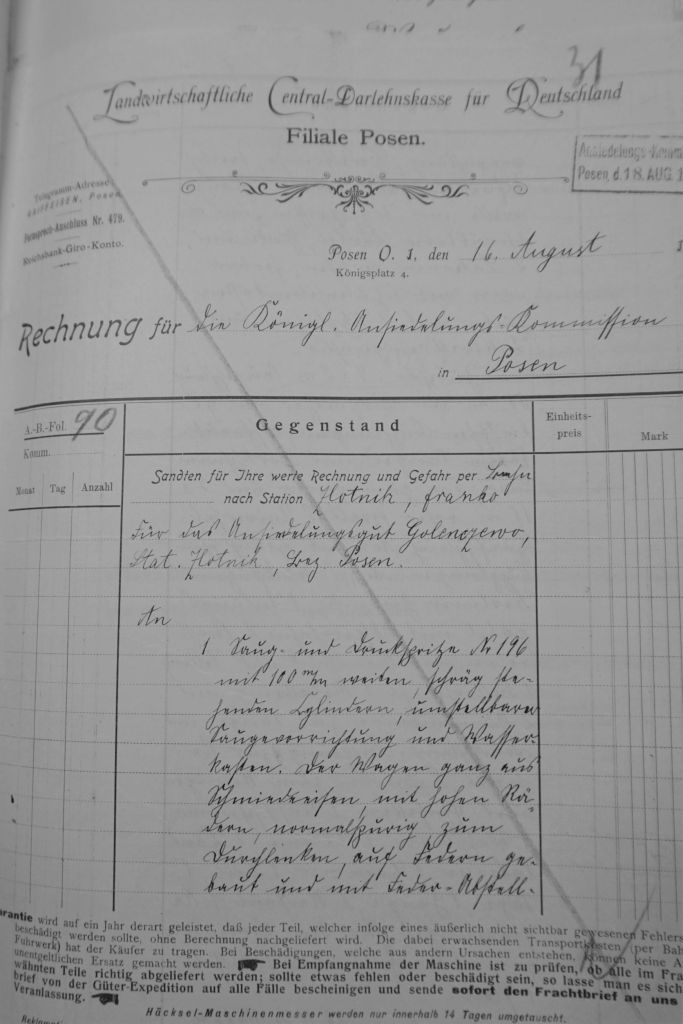 31
Landwirtschaftliche Central-Darlehnskasse für Deutschland
Filiale Posen.
Ansiedelungs-Komm
Posen, d. 18. AUG. 1
Telegramm-Adresse
RAIFFEISEN, Posen
Fernsprech-Anschluss Nr. 479.
Reichsbank-Giro-Konto.
Posen O. 1, den 16. August 1
Königsplatz 4.
Rechnung für die Königl. Ansiedelungs-Kommission
in Posen
A.-B.-Fol. 90
Komm.
Monat Tag Anzahl
Gegenstand
Einheits-
preis
Mark
Sandten für Ihre werte Rechnung und Gefahr per Bahn
nach Station Zlotnik, franko
Für das Ansiedelungsgut Golenczewo,
Stat. Zlotnik, Bez. Posen.
An
1 Saug- und Druckspritze No 196
mit 100 m/m weiten, schräg ste-
henden Cylindern, umstellbarer
Saugevorrichtung und Wasser-
kasten. Der Wagen ganz aus
Schmiedeeisen, mit hohen Rä-
dern, normalspurig, zum
Durchlenken, auf Federn ge-
baut und mit Feder-Abstell-
arantie wird auf ein Jahr derart geleistet, daß jeder Teil, welcher infolge eines äußerlich nicht sichtbar gewesenen Fehlers
beschädigt werden sollte, ohne Berechnung nachgeliefert wird. Die dabei erwachsenden Transportkosten (per Bah
Fuhrwerk) hat der Käufer zu tragen. Bei Beschädigungen, welche aus andern Ursachen entstehen, können keine A
unentgeltlichen Ersatz gemacht werden. Bei Empfangnahme der Maschine ist zu prüfen, ob alle im Fra
wähnten Teile richtig abgeliefert werden; sollte etwas fehlen oder beschädigt sein, so lasse man es sich
brief von der Güter-Expedition auf alle Fälle bescheinigen und sende sofort den Frachtbrief an uns
Veranlassung.
Häcksel-Maschinenmesser werden nur innerhalb 14 Tagen umgetauscht.